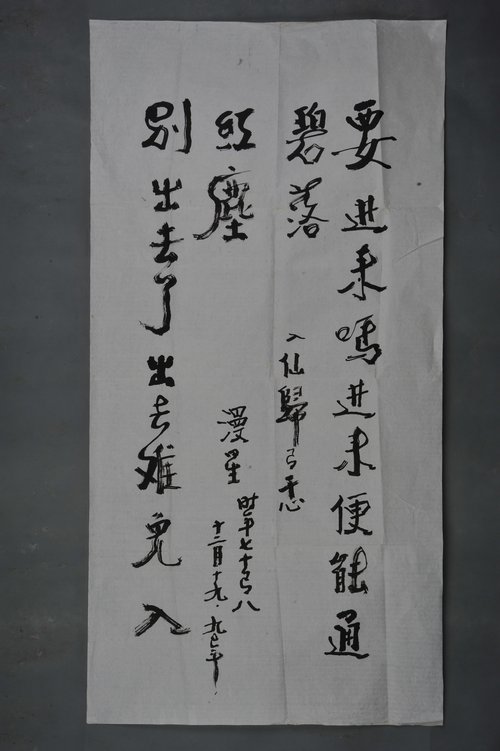 要进来吗进来便能通
碧落
入仙归
红尘
漫星
时年七十有八
十二月十九.九七年.
别出去了出去难免入